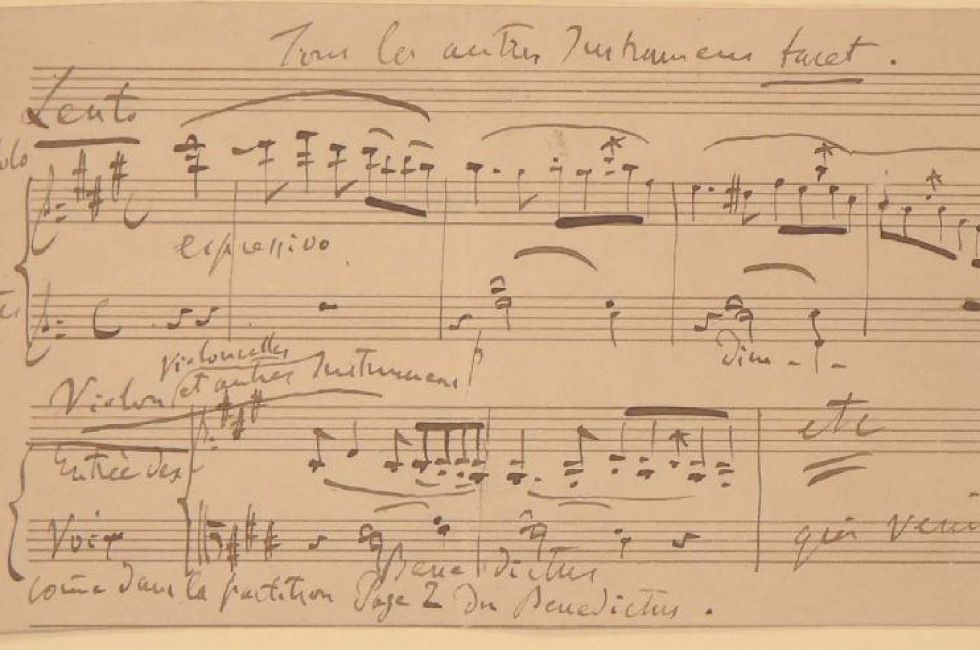 Tous les autres Instrumens tacet.
Lento
Solo
espressivo
dim - - -
Violoncelles
Violon et autres Instrumens
etc
Entrée des
Voix
qui veni
Bene dictus
come dans la partition Page 2 du Benedictus.